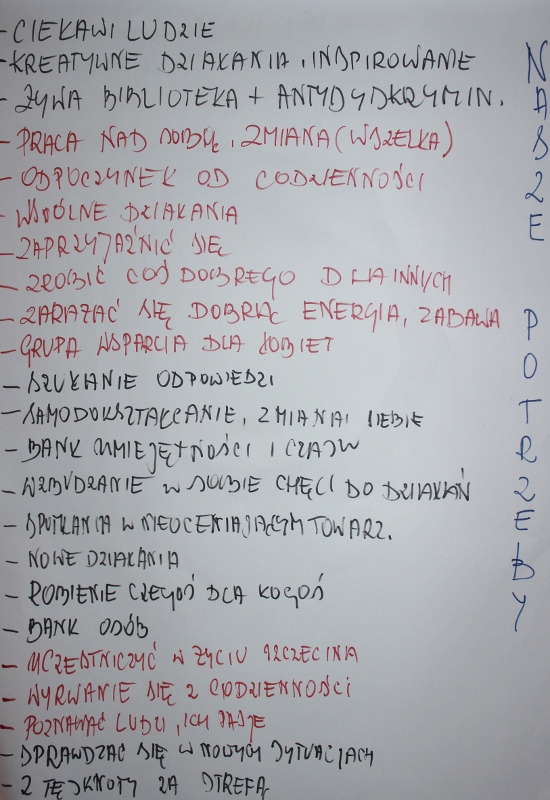 - CIEKAWI LUDZIE
- KREATYWNE DZIAŁANIA, INSPIROWANIE
- ŻYWA BIBLIOTEKA + ANTYDYSKRYMIN.
- PRACA NAD SOBĄ, ZMIANA (WSZELKA)
- ODPOCZYNEK OD CODZIENNOŚCI
- WSPÓLNE DZIAŁANIA
- ZAPRZYJAŹNIĆ SIĘ
- ZROBIĆ COŚ DOBREGO DLA INNYCH
- ZARAŻAĆ SIĘ DOBRĄ ENERGIĄ, ZABAWA
- GRUPA WSPARCIA DLA KOBIET
- SZUKANIE ODPOWIEDZI
- SAMODOKSZTAŁCANIE, ZMIANA SIEBIE
- BANK UMIEJĘTNOŚCI I CZASU
- WZBUDZANIE W SOBIE CHĘCI DO DZIAŁAŃ
- SPOTKANIA W NIEOCENIAJĄCYM TOWARZ.
- NOWE DZIAŁANIA
- ROBIENIE CZEGOŚ DLA KOGOŚ
- BANK OSÓB
- UCZESTNICZYĆ W ŻYCIU SZCZECINA
- WYRWANIE SIĘ Z CODZIENNOŚCI
- POZNAWAĆ LUDZI, ICH PASJE
- SPRAWDZAĆ SIĘ W NOWYCH SYTUACJACH
- Z TĘSKNOTY ZA STREFĄ
NASZE POTRZEBY